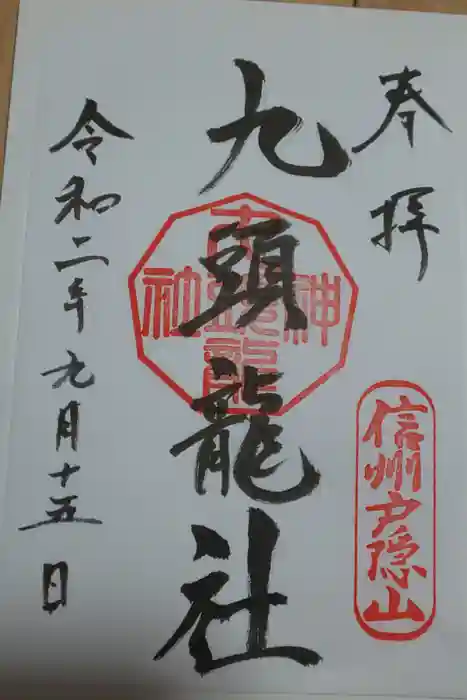 奉拝
信州戸隠山
九頭龍社
令和二年九月十五日